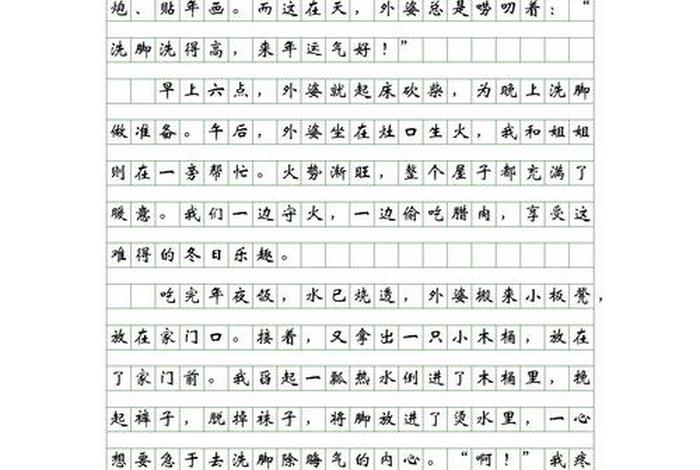 炮、贴年画。而这在天，外婆总是唠叨着：“
洗脚洗得高，来年运气好！”
早上六点，外婆就起床砍柴，为晚上洗脚
做准备。午后，外婆坐在灶口生火，我和姐姐
则在一旁帮忙。火势渐旺，整个屋子都充满了
暖意。我们一边守火，一边偷吃腊肉，享受这
难得的冬日乐趣。
吃完年夜饭，水已烧透，外婆搬来小板凳，
放在家门口。接着，又拿出一只小木桶，放在
了家门前。我舀起一瓢热水倒进了木桶里，挽
起裤子，脱掉袜子，将脚放进了烫水里，一心
想要急于去洗脚除晦气的内心。“啊！”我疼